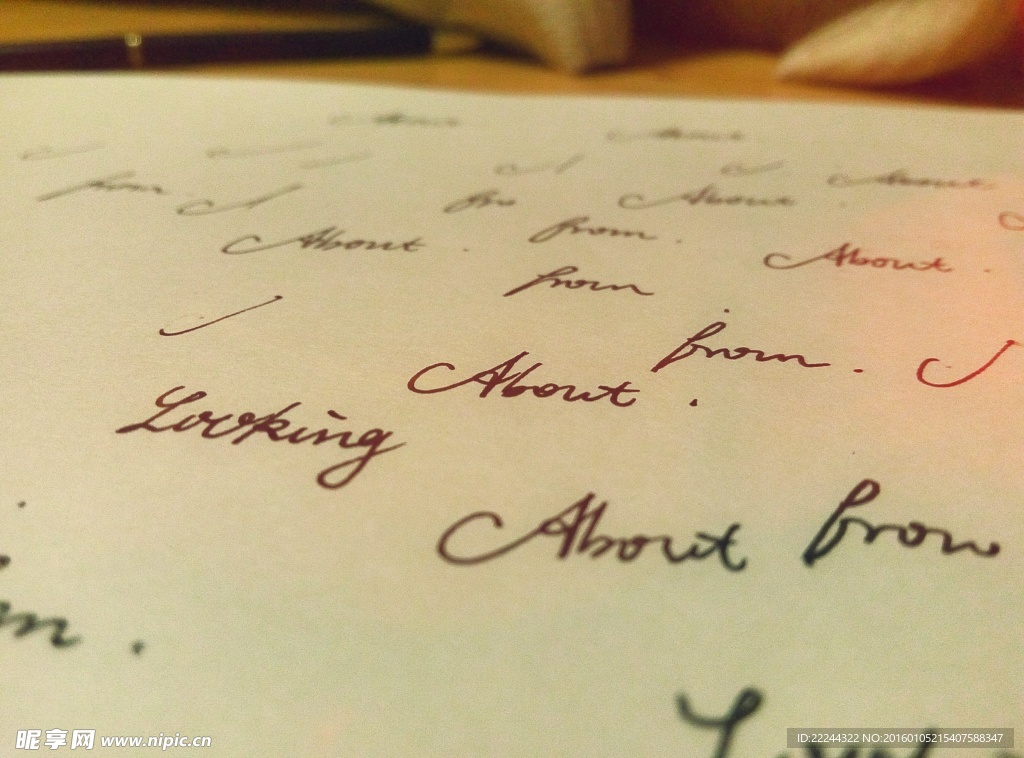 About About
About
from fro About
About . from . About .
from
from .
About .
Looking
About from
.
昵享网 www.nipic.cn
ID:22244322 NO:20160105215407588347